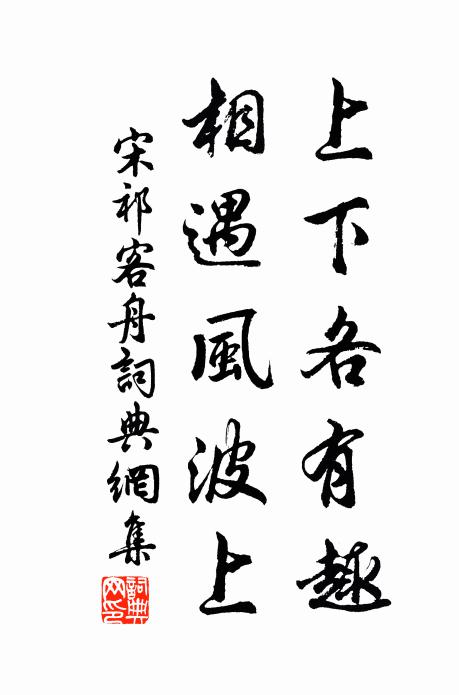 上下各有趣
相遇風波上
宋祁客舟詞典網集
詞典网印